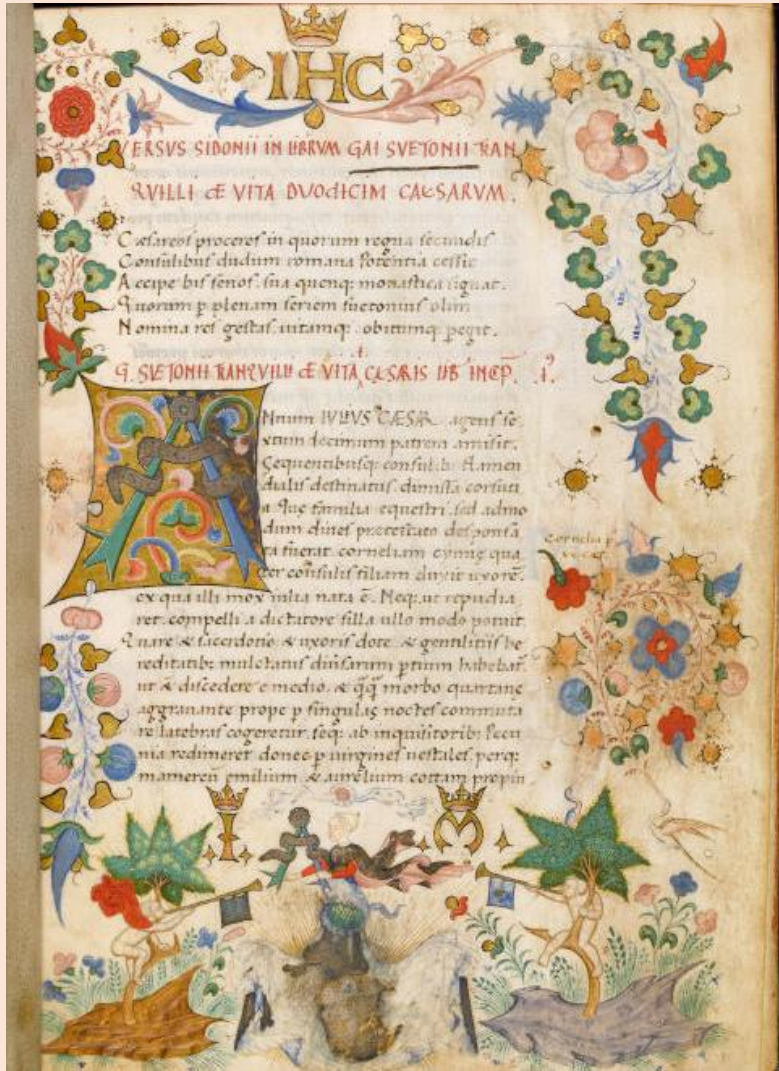 IHC
VERSVS SIDONII IN LIBRVM GAI SVETONII TRAN
QVILLI DE VITA DVODICIM CAESARVM.
Cæsareos proceres in quorum regna secundis
Consulibus dudum romana potentia cessit
Accipe bis senos. sua quenq; monastica signat.
Quorum p plenam seriem suetonius olim
Nomina res gestas uitamq; obitumq; pegit.
G. SVETONII TRANQVILLI DE VITA CAESARIS LIB INCEP. .I.
ANnum IVLIVS CÆSAR agens se
xtum decimum patrem amisit.
Sequentibusq; consulib; flamen
dialis destinatus dimissa
Que familia equestri. sed admo
dum diues pretextato desponsa
ta fuerat. corneliam cynnę qua
ter consulis filiam duxit uxorē.
ex qua illi mox iulia nata ē. Neq; ut repudia
ret compelli a dictatore silla ullo modo potuit
Quare & sacerdotio & uxoris dote & gentilitiis he
reditatib; mulctatus diuisarum ptium habebat̃.
ut & discedere e medio. & q̃q̃ morbo quartanę
aggrauante prope p singulas noctes commuta
re latebras cogeretur. seq; ab inquisitorib; pecu
nia redimeret donec p uirgines uestales. perq;
mamercū emilium & aurelium cottam propin
Cornelia
I M